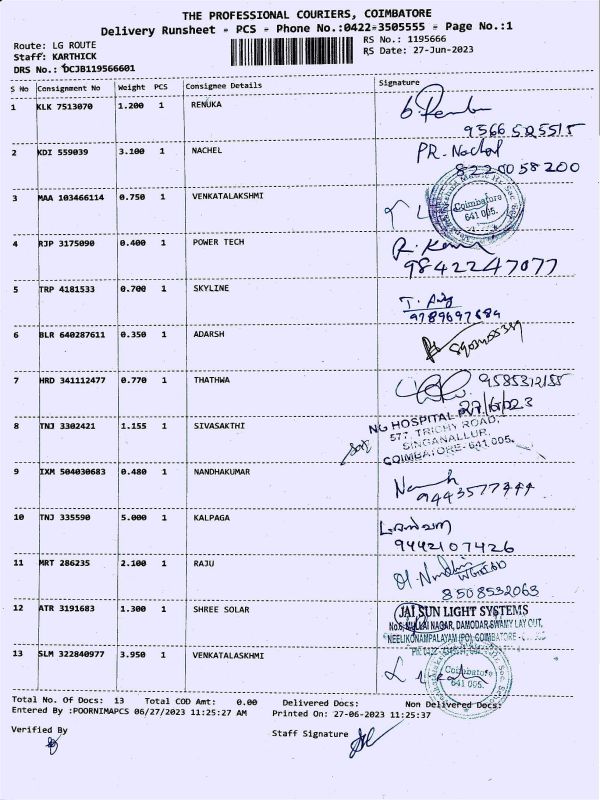 THE PROFESSIONAL COURIERS, COIMBATORE
Delivery Runsheet - PCS - Phone No.:0422-3505555 - Page No.:1
Route: LG ROUTE RS No.: 1195666
Staff: KARTHICK RS Date: 27-Jun-2023
DRS No.: DCJB119566601
S No Consignment No Weight PCS Consignee Details Signature
1 KLK 7513070 1.200 1 RENUKA
9566 525515
2 KDI 559039 3.100 1 NACHEL PR. Nachal
8220058200
3 MAA 103466114 0.750 1 VENKATALAKSHMI
Coimbatore
641 005.
4 RJP 3175090 0.400 1 POWER TECH
9842247077
5 TRP 4181533 0.700 1 SKYLINE
9789697684
6 BLR 640287611 0.350 1 ADARSH
7 HRD 341112477 0.770 1 THATHWA 9585312155
27/6/2023
8 TNJ 3302421 1.155 1 SIVASAKTHI
NG HOSPITAL
577, TRICHY ROAD,
SINGANALLUR,
COIMBATORE-641 005.
9 IXM 504030683 0.480 1 NANDHAKUMAR
9443577444
10 TNJ 335590 5.000 1 KALPAGA
9442107426
11 MRT 286235 2.100 1 RAJU
8508532063
12 ATR 3191683 1.300 1 SHREE SOLAR
JAI SUN LIGHT SYSTEMS
NAGAR, DAMODAR SWAMY LAY OUT,
NEELIKONAMPALAYAM (PO) COIMBATORE -
13 SLM 322840977 3.950 1 VENKATALASKHMI
Coimbatore
641 005.
Total No. Of Docs: 13 Total COD Amt: 0.00 Delivered Docs: Non Delivered Docs:
Entered By :POORNIMAPCS 06/27/2023 11:25:27 AM Printed On: 27-06-2023 11:25:37
Verified By Staff Signature